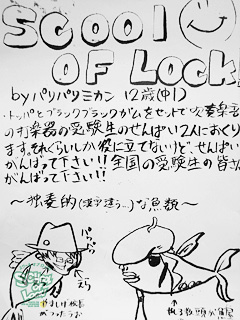 SCOOL
OF LOCK!
byパリパリミカン 12歳(中1)
トッパとブラックブラックガムをセットで吹奏楽部
の打楽器の受験生のせんぱい2人におくり
ます。それくらいしか役に立てないけど、せんぱい
がんばって下さい!!全国の受験生の皆さん
がんばって下さい!!
〜独奏的(漢字違う…)な魚類〜
ぱらぱら
えら
えら